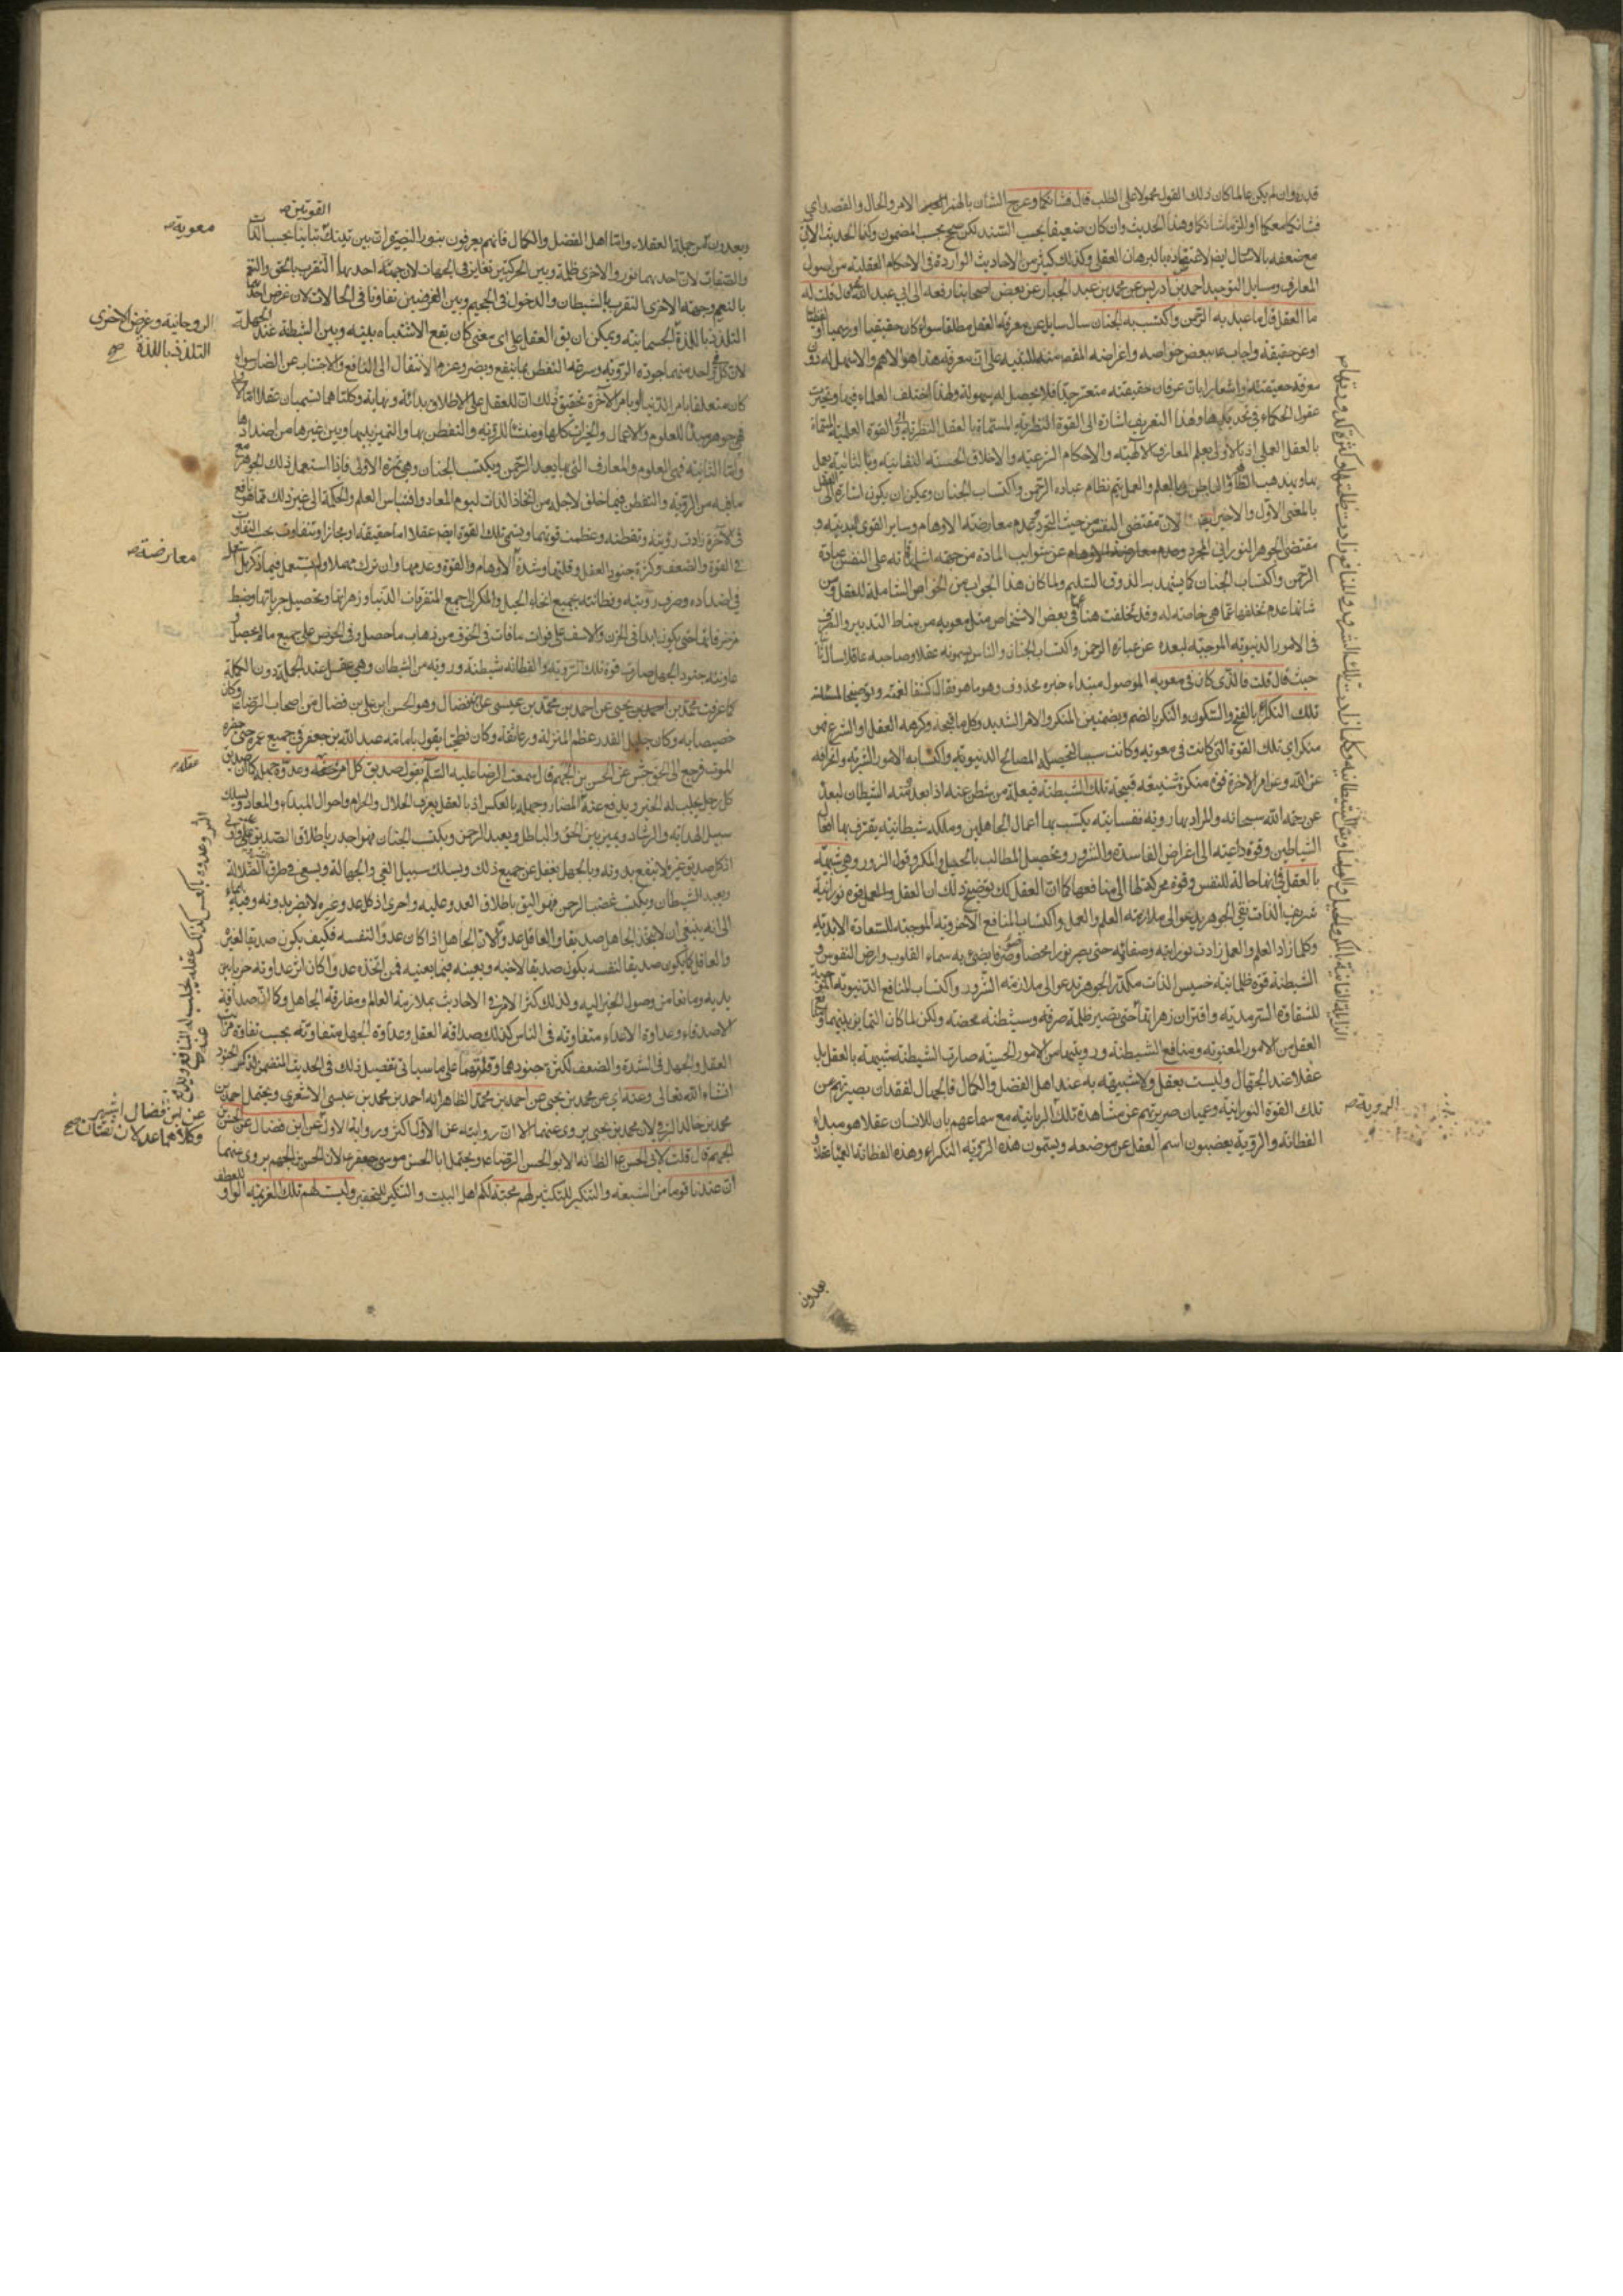 قدروان لم يكن عالما كان ذلك القول محمولا على الطلب قال فشانكما وعرج الشأن بالهمز الامر والحال والقصد اي
فشانكما معكما او الزما شانكما وهذا الحديث وان كان ضعيفا بحسب السند لكن صحيح بحسب المضمون وكذا الحديث الآتي
مع ضعفه بالارسال ايضا لاعتضاده بالبرهان العقلي وكذلك كثير من الاحاديث الواردة في الاحكام العقلية من اصول
المعارف ومسايل التوحيد احمد بن ادريس عن محمد بن عبد الجبار عن بعض اصحابنا رفعه الى ابي عبد الله ع قال قلت له
ما العقل قال ما عبد به الرحمن واكتسب به الجنان سال سايل عن معرفة العقل مطلقا سواء كان حقيقيا او رسميا او
او عن حقيقته واجاب ع ببعض خواصه واعراضه المقصود منه للتنبيه على ان معرفته هذا هو الاهم والاسهل له دون
معرفة حقيقته واشعارا بان عرفان حقيقته متعسر جدا فلا يحصل له بسهولة ولهذا اختلف العلماء فيها وتحيرت
عقول الحكماء في تحديدها وهذا التعريف اشارة الى القوة النظرية المسماة بالعقل النظري والقوة العملية المسماة
بالعقل العملي اذ بالاولى يعلم المعارف الالهية والاحكام الشرعية والاخلاق الحسنة النفسانية وبالثانية يعمل
بها وبتهذيب الظاهر والباطن وبالعلم والعمل يتم نظام عبادة الرحمن واكتساب الجنان ويمكن ان يكون اشارة الى العقل
بالمعنى الاول والاخير لان مقتضى النفس من حيث التجرد وعدم معارضة الاوهام وساير القوى البدنية و
مقتضى الجوهر النوراني المجرد عن شوايب المادة من جهة اشراقاته على النفس عبادة
الرحمن واكتساب الجنان كما يشهد به الذوق السليم ولما كان هذا الجواب من الخواص الشاملة للعقل ومن
شانها عدم تخلفها عما هي خاصة له وقد تخلفت هنا في بعض الاشخاص مثل معوية من مناط التدبير والتصرف
في الامور الدنيوية الموجبة لبعده عن عبادة الرحمن واكتساب الجنان والناس يسمونه عقلا وصاحبه عاقلا سال ثانيا
حيث قال قلت فالذي كان في معوية الموصول مبتداء خبره محذوف وهو ما هو فقال كشفا لغمته وتوضيحا لمسئلته
تلك النكراء بالفتح والسكون والنكر بالضم وبضمتين المنكر والامر الشديد وكل ما قبحه وكرهه العقل او الشرع فهو
منكر اي تلك القوة التي كانت في معوية وكانت سببا لتحصيله المصالح الدنيوية واكتسابه الامور الشرية وانحرافه
عن الله وعن امر الاخرة قوة منكرة شنيعة قبيحة تلك الشيطنة فيعلة من شطن عنه اذا بعد ومنه الشيطان لبعده
عن رحمة الله سبحانه والمراد بها روية نفسانية يكتسب بها اعمال الجاهلين وملكة شيطانية يقترف بها افعال
الشياطين وقوة داعية الى اغراض الفاسدة والشرور وتحصيل المطالب بالحيل والمكر وقول الزور وهي شبيهة
بالعقل في انها حالة للنفس وقوة محركة لها الى منافعها كما ان العقل كك توضيح ذلك ان العقل قوة نورانية
شريف الذات نقي الجوهر يدعو الى ملازمة العلم والعمل واكتساب المنافع الاخروية الموجبة للسعادة الابدية
وكلما زاد العلم والعمل زادت نورانيته وصفائه حتى يصير نورا محضا وضوءا صرفا يضيء به سماء القلوب وارض النفوس و
الشيطنة قوة ظلمانية خسيس الذات مكدر الجوهر يدعو الى ملازمة الشرور واكتساب المنافع الدنيوية الموجبة
للشقاوة السرمدية واقتران زهراتها حتى تصير ظلمة صرفة وسيئة محضة ولكن لما كان التمايز بينهما وبين منافع
العقل من الامور المعنوية ومنافع الشيطنة ورويتها من الامور الحسية صارت الشيطنة شبيهة بالعقل بل
عقلا عند الجهال وليست بعقل ولا شبيهة به عند اهل الفضل والكمال فالجهال لفقدان بصيرتهم عن
تلك القوة النورانية وعميان ضريرتهم عن مشاهدة تلك الربانية مع سماعهم بان للانسان عقلا هو مبداء
الفطانة والروية يغصبون اسم العقل عن موضعه ويسمون هذه الروية النكراء وهذه الفطانة العمياء عقلا و
الروية ص
يعدون
القوتين ص
ويعدون من جملة العقلاء واما اهل الفضل والكمال فانهم يعرفون بنور البصيرة ان بين تينك تباينا بحسب الذات
والصفات لان احديهما نور والاخرى ظلمة وبين الحركتين تغاير في الجهات لان جهة احديهما التقرب بالحق والتنعم
بالنعيم وجهة الاخرى التقرب بالشيطان والدخول في الجحيم وبين الغرضين تفاوتا في الحالات لان غرض احديهما
التلذذ باللذة الجسمانية ويمكن ان يق العقل على اي معنى كان يقع الاشتباه بينه وبين الشيطنة عند الجهلة
لان كل واحد منهما جودة الروية وسرعة التفطن بما ينفع ويضر وعزم الانتقال الى النافع والاجتناب عن الضار سواء
كان متعلقا بامر الدنيا او بامر الآخرة تحقيق ذلك ان للعقل على الاطلاق بداية ونهاية وكلتاهما تسميان عقلا اما الاولى
فهي جوهر مبدأ للعلوم والاعمال والخيرات كلها ومنشأ للروية والتفطن بها والتميز بينها وبين غيرها من اضدادها
واما الثانية فهي العلوم والمعارف التي بها يعبد الرحمن ويكتسب الجنان وهي ثمرة الاولى فاذا استعمل ذلك الجوهر مع
ما فيه من الروية والتفطن فيما خلق لاجله من اتخاذ الذات ليوم المعاد واقتباس العلم والحكمة الى غير ذلك مما هو نافع
في الآخرة زادت رويته وتفطنه وعظمت قوتهما ويسمى تلك القوة ايضا عقلا اما حقيقة او مجازا وتتفاوت بحسب التفاوت
في القوة والضعف وكثرة جنود العقل وقلتها وشدة الاوهام والقوة وعدمها وان ترك مهملا ولم يستعمل فيما ذكر بل استعمل
في اضداده وصرف رويته وفطانته بجميع انحاء الحيل والمكر الى جمع المتفرقات الدنيا وزهراتها وتحصيل جزياتها وضبط
مزخرفاتها حتى يكون ابدا في الحزن والاسف على فوات ما فات وفي الخوف من ذهاب ما حصل وفي الحرص على جمع ما لا يحصل و
عاونته جنود الجهل صارت قوة تلك الروية والفطانة شيطنة وروية من الشيطان وهي عقل عند الجهلة دون الكملة
كما عرفت محمد بن احمد بن يحيى عن احمد بن محمد بن عيسى عن ابن فضال وهو الحسن بن علي بن فضال من اصحاب الرضا ع وكان
خصيصا به وكان جليل القدر عظيم المنزلة ورعا ثقة وكان فطحيا يقول بامامة عبد الله بن جعفر في جميع عمره حتى حضره
الموت فرجع الى الحق عن الحسن بن الجهم قال سمعت الرضا عليه السلام يقول صديق كل امرئ عقله وعدوه جهله كان صديق
كل رجل يجلب له الخير ويدفع عنه المضار وجهله بالعكس اذ بالعقل يعرف الحلال والحرام واحوال المبداء والمعاد ويسلك
سبيل الهداية والرشاد ويميز بين الحق والباطل ويعبد الرحمن ويكتسب الجنان فهو اجدر باطلاق الصديق عليه
اذ كل صديق غيره لا ينفع بدونه وبالجهل يغفل عن جميع ذلك ويسلك سبيل الغي والجهالة ويسعى في طرق الضلالة
ويعبد الشيطان ويكسب غضب الرحمن فهو اليق باطلاق العدو عليه واحرى اذ كل عدو غيره لا يضر بدونه وفيه ايماء
الى انه ينبغي ان لا يتخذ الجاهل صديقا والعاقل عدوا لان الجاهل اذا كان عدوا لنفسه فكيف يكون صديقا لغيره
والعاقل كما يكون صديقا لنفسه يكون صديقا لاخيه ويعينه فيما يعنيه فمن اتخذه عدوا كان اثر عداوته حرمانا من
يديه ومانعا من وصول الخير اليه ولذلك كثر الامر في الاحاديث بملازمة العالم ومفارقة الجاهل وكما ان صداقة
الاصدقاء وعداوة الاعداء متفاوتة في الناس كذلك صداقة العقل وعداوة الجهل متفاوتة بحسب تفاوت مراتب
العقل والجهل في الشدة والضعف لكثرة جنودهما وقلتهما على ما سياتي تفصيل ذلك في الحديث المتضمن لذكر الجنود
انشاء الله تعالى وعنه اي عن محمد بن يحيى عن احمد بن محمد الظاهر انه احمد بن محمد بن عيسى الاشعري ويحتمل احمد بن
محمد بن خالد البرقي لان محمد بن يحيى يروي عنهما الا ان روايته عن الاول اكثر ورواية الاول عن ابن فضال عن الحسن بن
الجهم قال قلت لابي الحسن ع الظاهر انه ابو الحسن الرضا ع ويحتمل ابا الحسن موسى بن جعفر ع لان الحسن بن الجهم يروي عنهما
ان عندنا قوما من الشيعة والتنكير للتكثير لهم محبة لكم اهل البيت والتنكير للتحقير وليست لهم تلك العزيمة الواو للعطف
معوية ص
الروحانية وغرض الاخرى
التلذذ باللذة ص
معارضة ص
عقله ص
عن ابن فضال اشهر
وكلاهما عدلان ثقتان صح